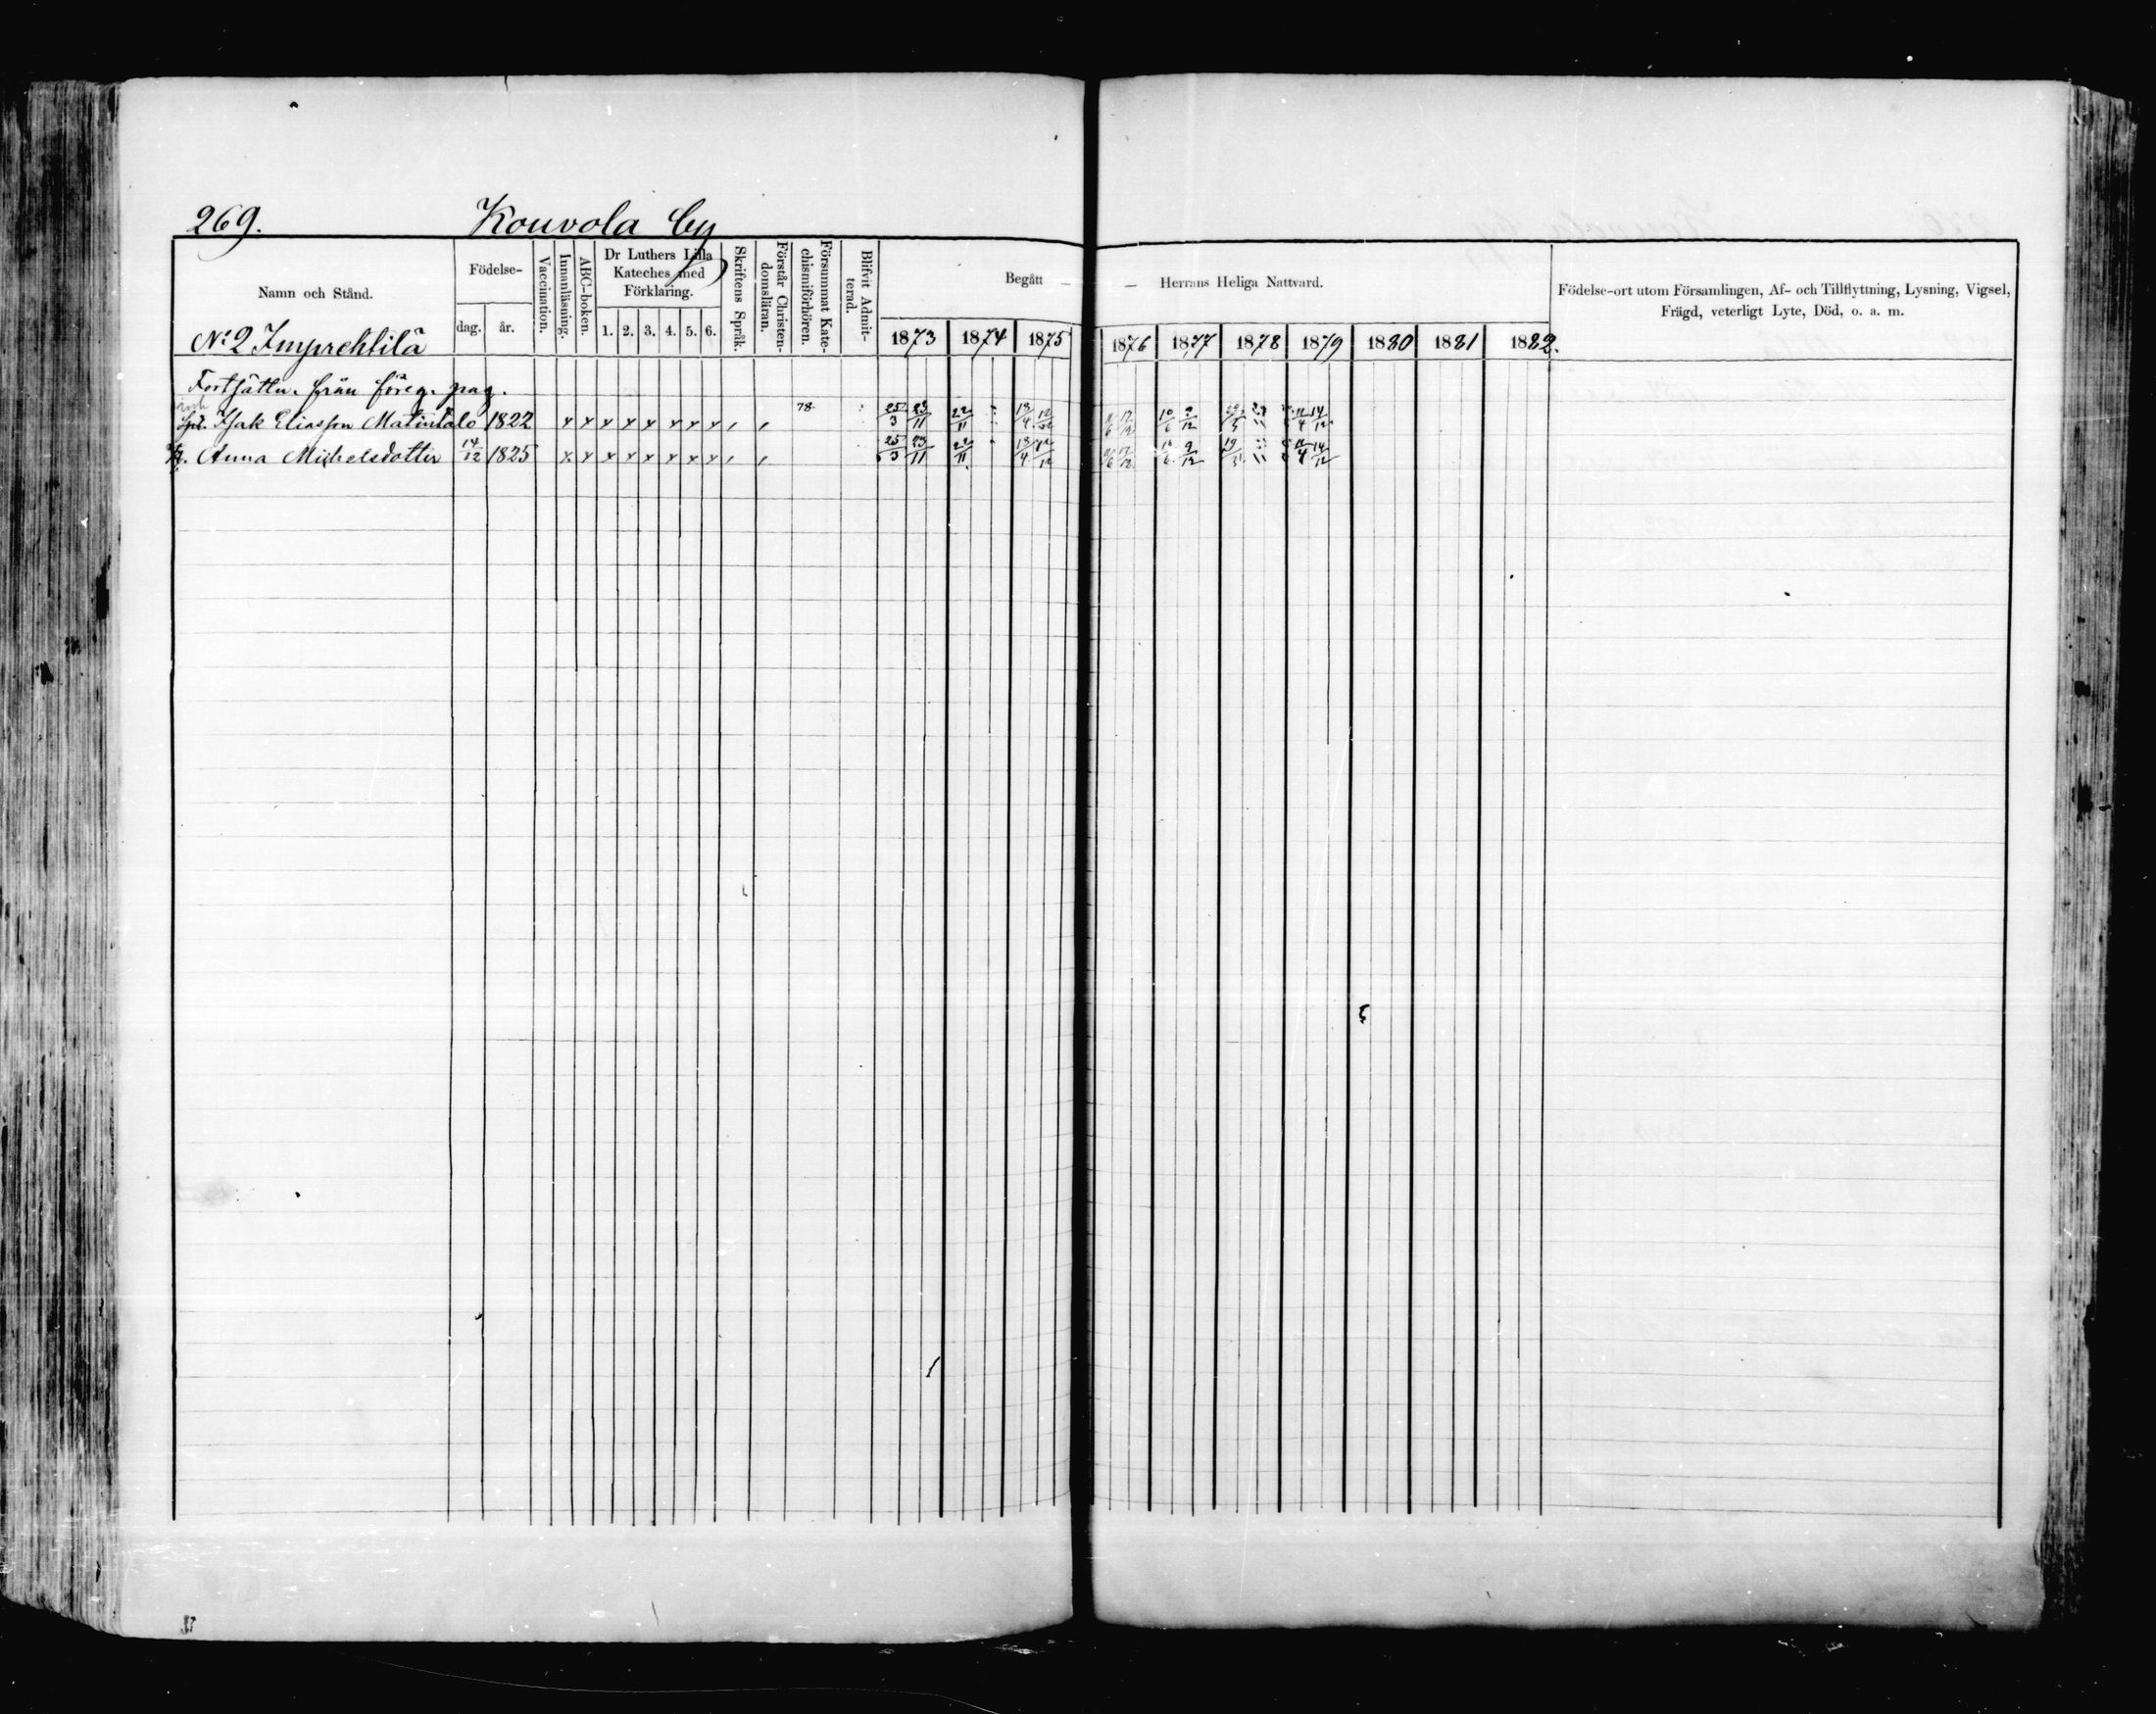 269. Kouvola by
Namn och Stånd.
Födelse-
dag. år.
Vaccination.
Innanläsning.
ABC-boken.
Dr Luthers Lilla
Kateches med
Förklaring.
1. 2. 3. 4. 5. 6.
Skriftens Språk.
Förstår Christen-
domsläran.
Försummat Kate-
chismiförhören.
Blifvit Admit-
terad.
Begått — — Herrans Heliga Nattvard.
1873 1874 1875 1876 1877 1878 1879 1880 1881 1882.
Födelse-ort utom Församlingen, Af- och Tillflyttning, Lysning, Vigsel,
Frägd, veterligt Lyte, Död, o. a. m.
No 2 Imprehtilä
Fortsättn. från föreg. pag.
Isak Eliasson Matintalo 1822 x x x x x x x x 78. 25/3 23/11 22/11 18/4 12/12 10/6 2/12 14/12
Anna Michelsdotter 14/12 1825 x x x x x x x x 25/3 23/11 22/11 18/4 10/6 2/12 14/12